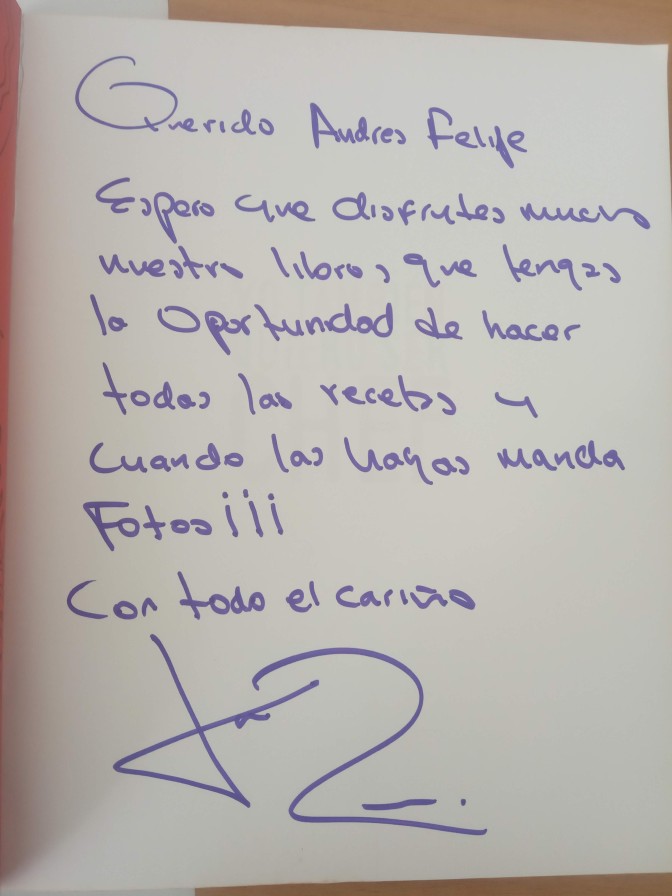 Querido Andres Felipe
Espero que disfrutes mucho
nuestro libro, que tengas
la oportunidad de hacer
todas las recetas y
cuando las hagas manda
Fotos¡¡¡
Con todo el cariño